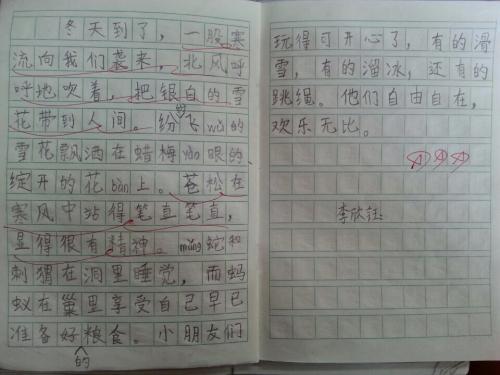 冬天到了，一股寒
流向我们袭来，北风呼
呼地吹着，把银白的雪
花带到人间。纷飞wǔ的
雪花飘洒在蜡梅yào眼的、
绽开的花bàn上。苍松在
寒风中站得笔直笔直，
显得很有精神。mǎng蛇和
刺猬在洞里睡觉，而蚂
蚁在巢里享受自己早已
准备好的粮食。小朋友们
玩得可开心了，有的滑
雪，有的溜冰，还有的
跳绳。他们自由自在，
欢乐无比。
李欣钰